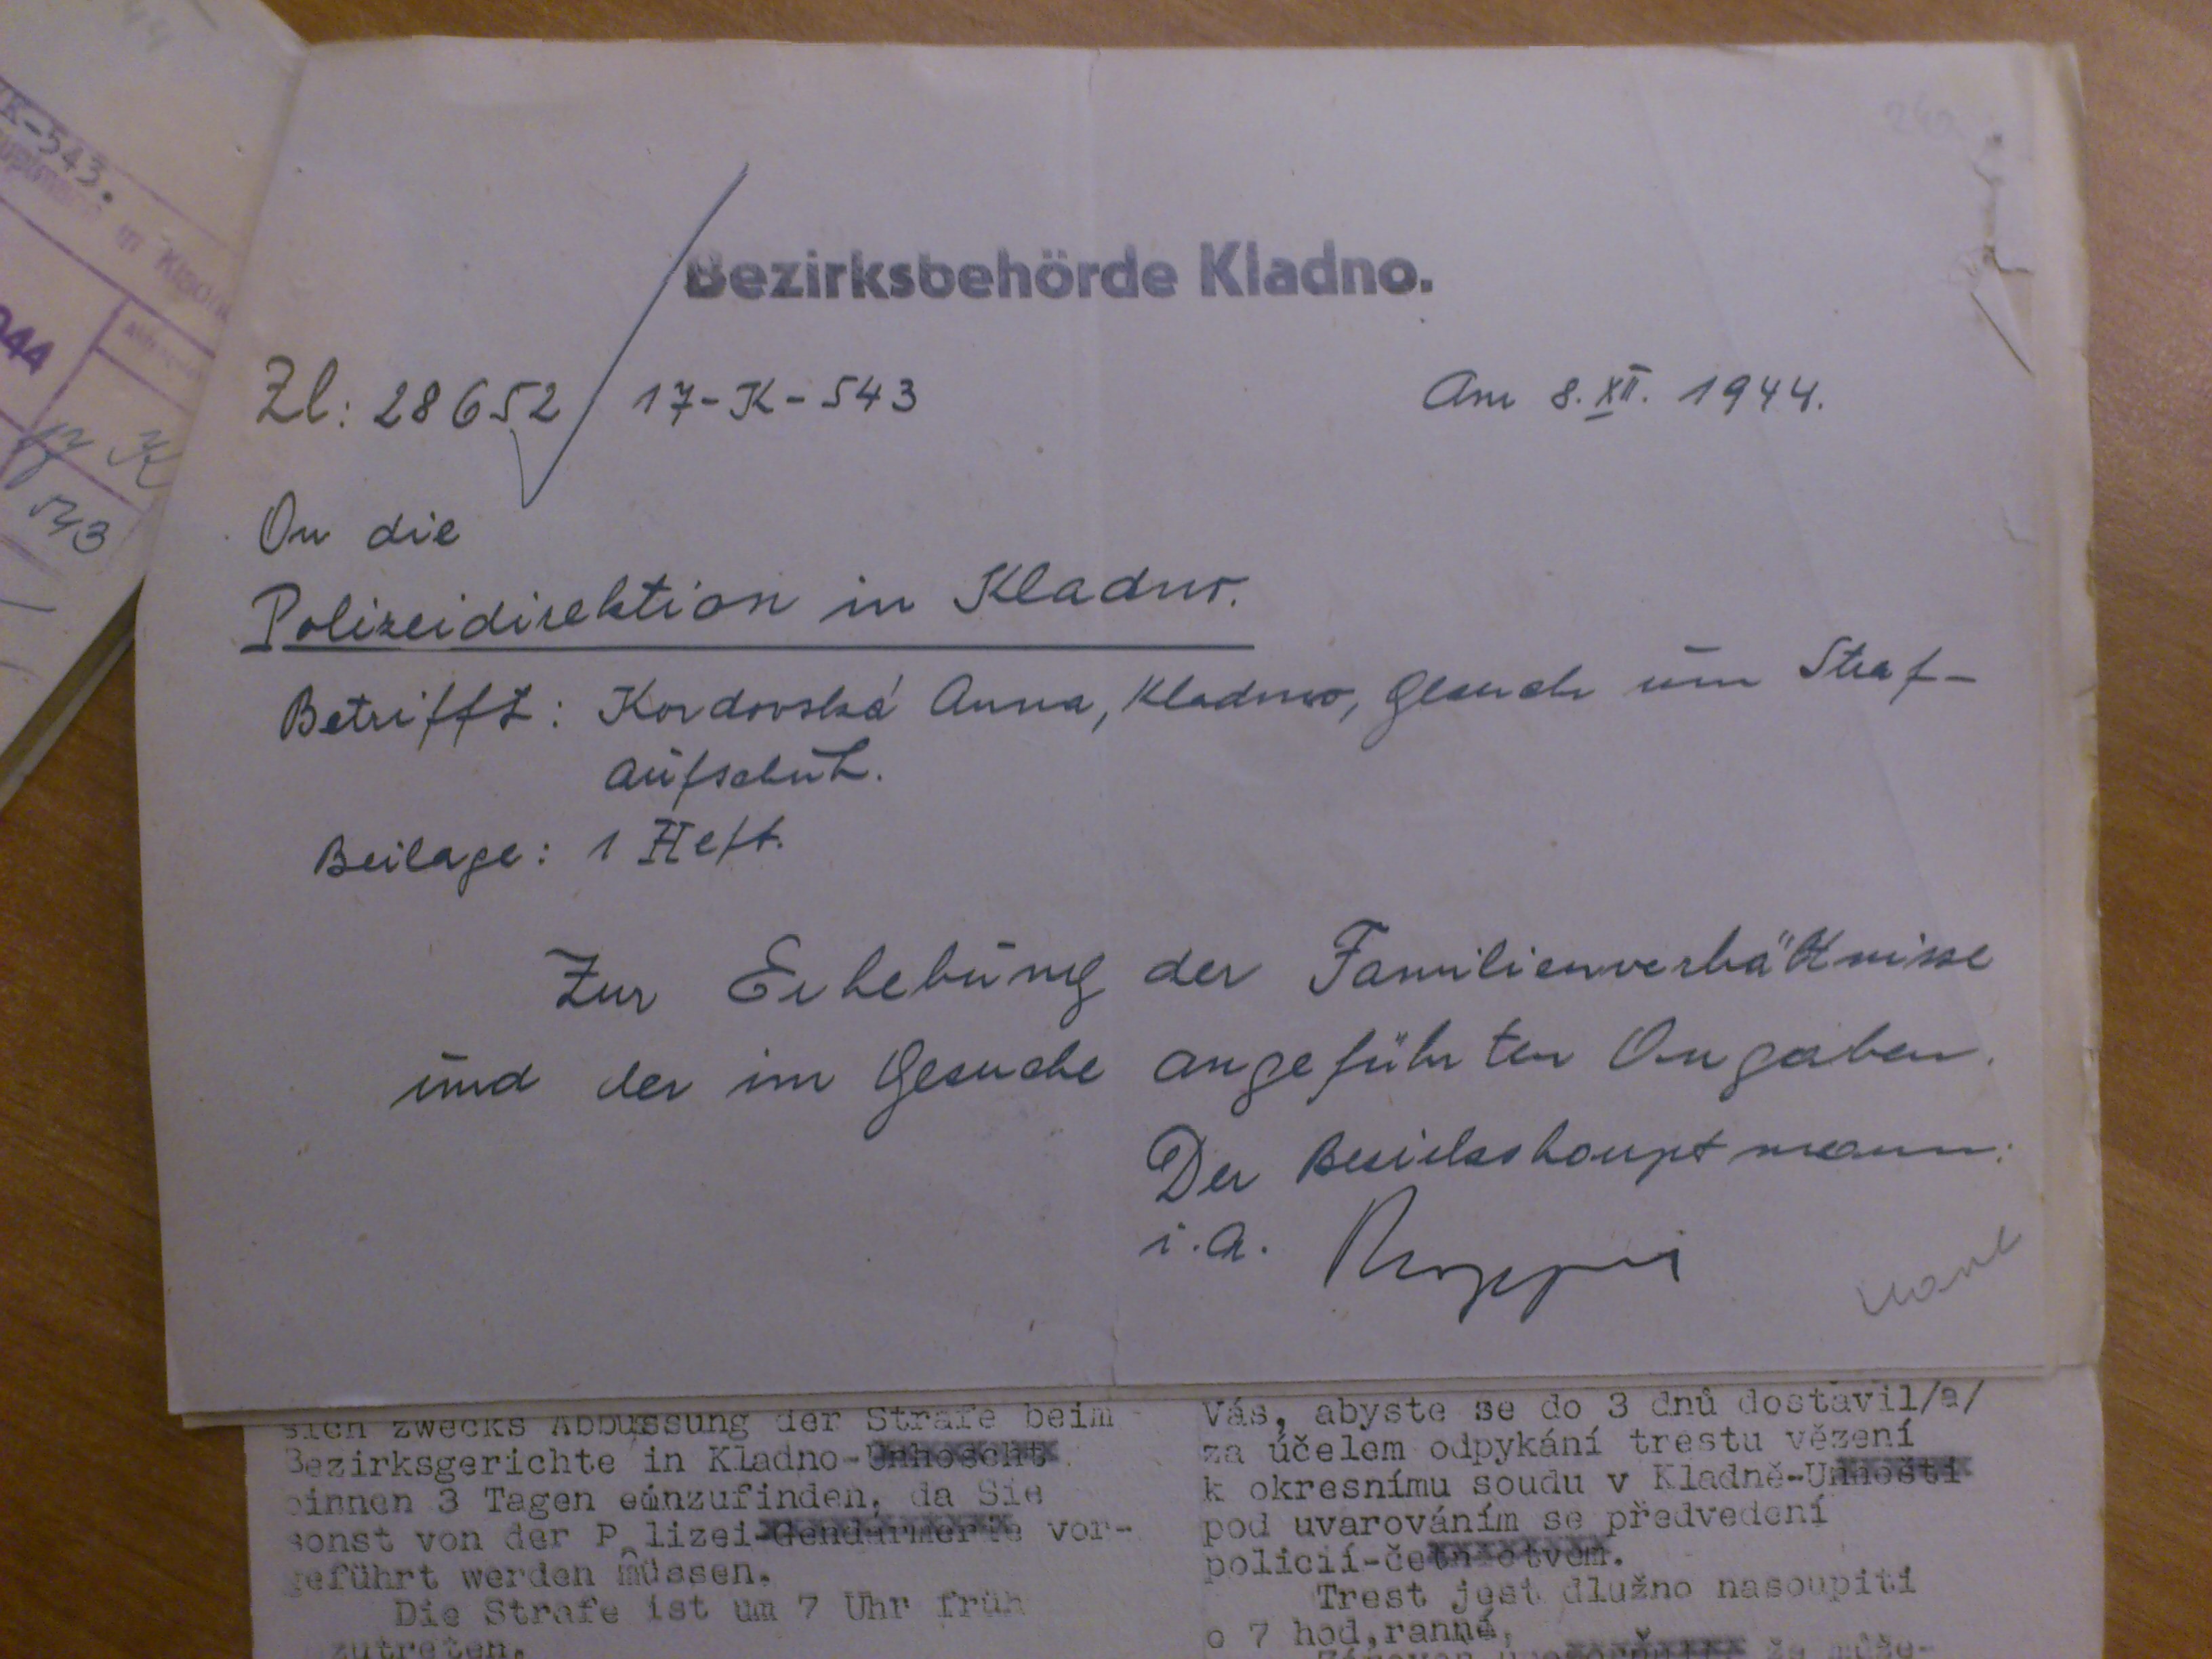 K-543.
944
K
543
Bezirksbehörde Kladno.
Zl: 28652/17-K-543 Am 8. XII. 1944.
An die
Polizeidirektion in Kladno.
Betrifft: Kordovská Anna, Kladno, Gesuch um Straf-
aufschub.
Beilage: 1 Heft.
Zur Erhebung der Familienverhältnisse
und der im Gesuche angeführten Angaben.
Der Bezirkshauptmann:
i.A.
sich zwecks Abbüssung der Strafe beim
Bezirksgerichte in Kladno-Unhoscht
binnen 3 Tagen einzufinden, da Sie
sonst von der Polizei-Gendarmerie vor-
geführt werden müssen.
Die Strafe ist um 7 Uhr früh
zutreten.
Vás, abyste se do 3 dnů dostavil/a/
za účelem odpykání trestu vězení
k okresnímu soudu v Kladně-Unhošti
pod uvarováním se předvedení
policií-četnictvem.
Trest jest dlužno nasoupiti
o 7 hod,ranné,
že může-